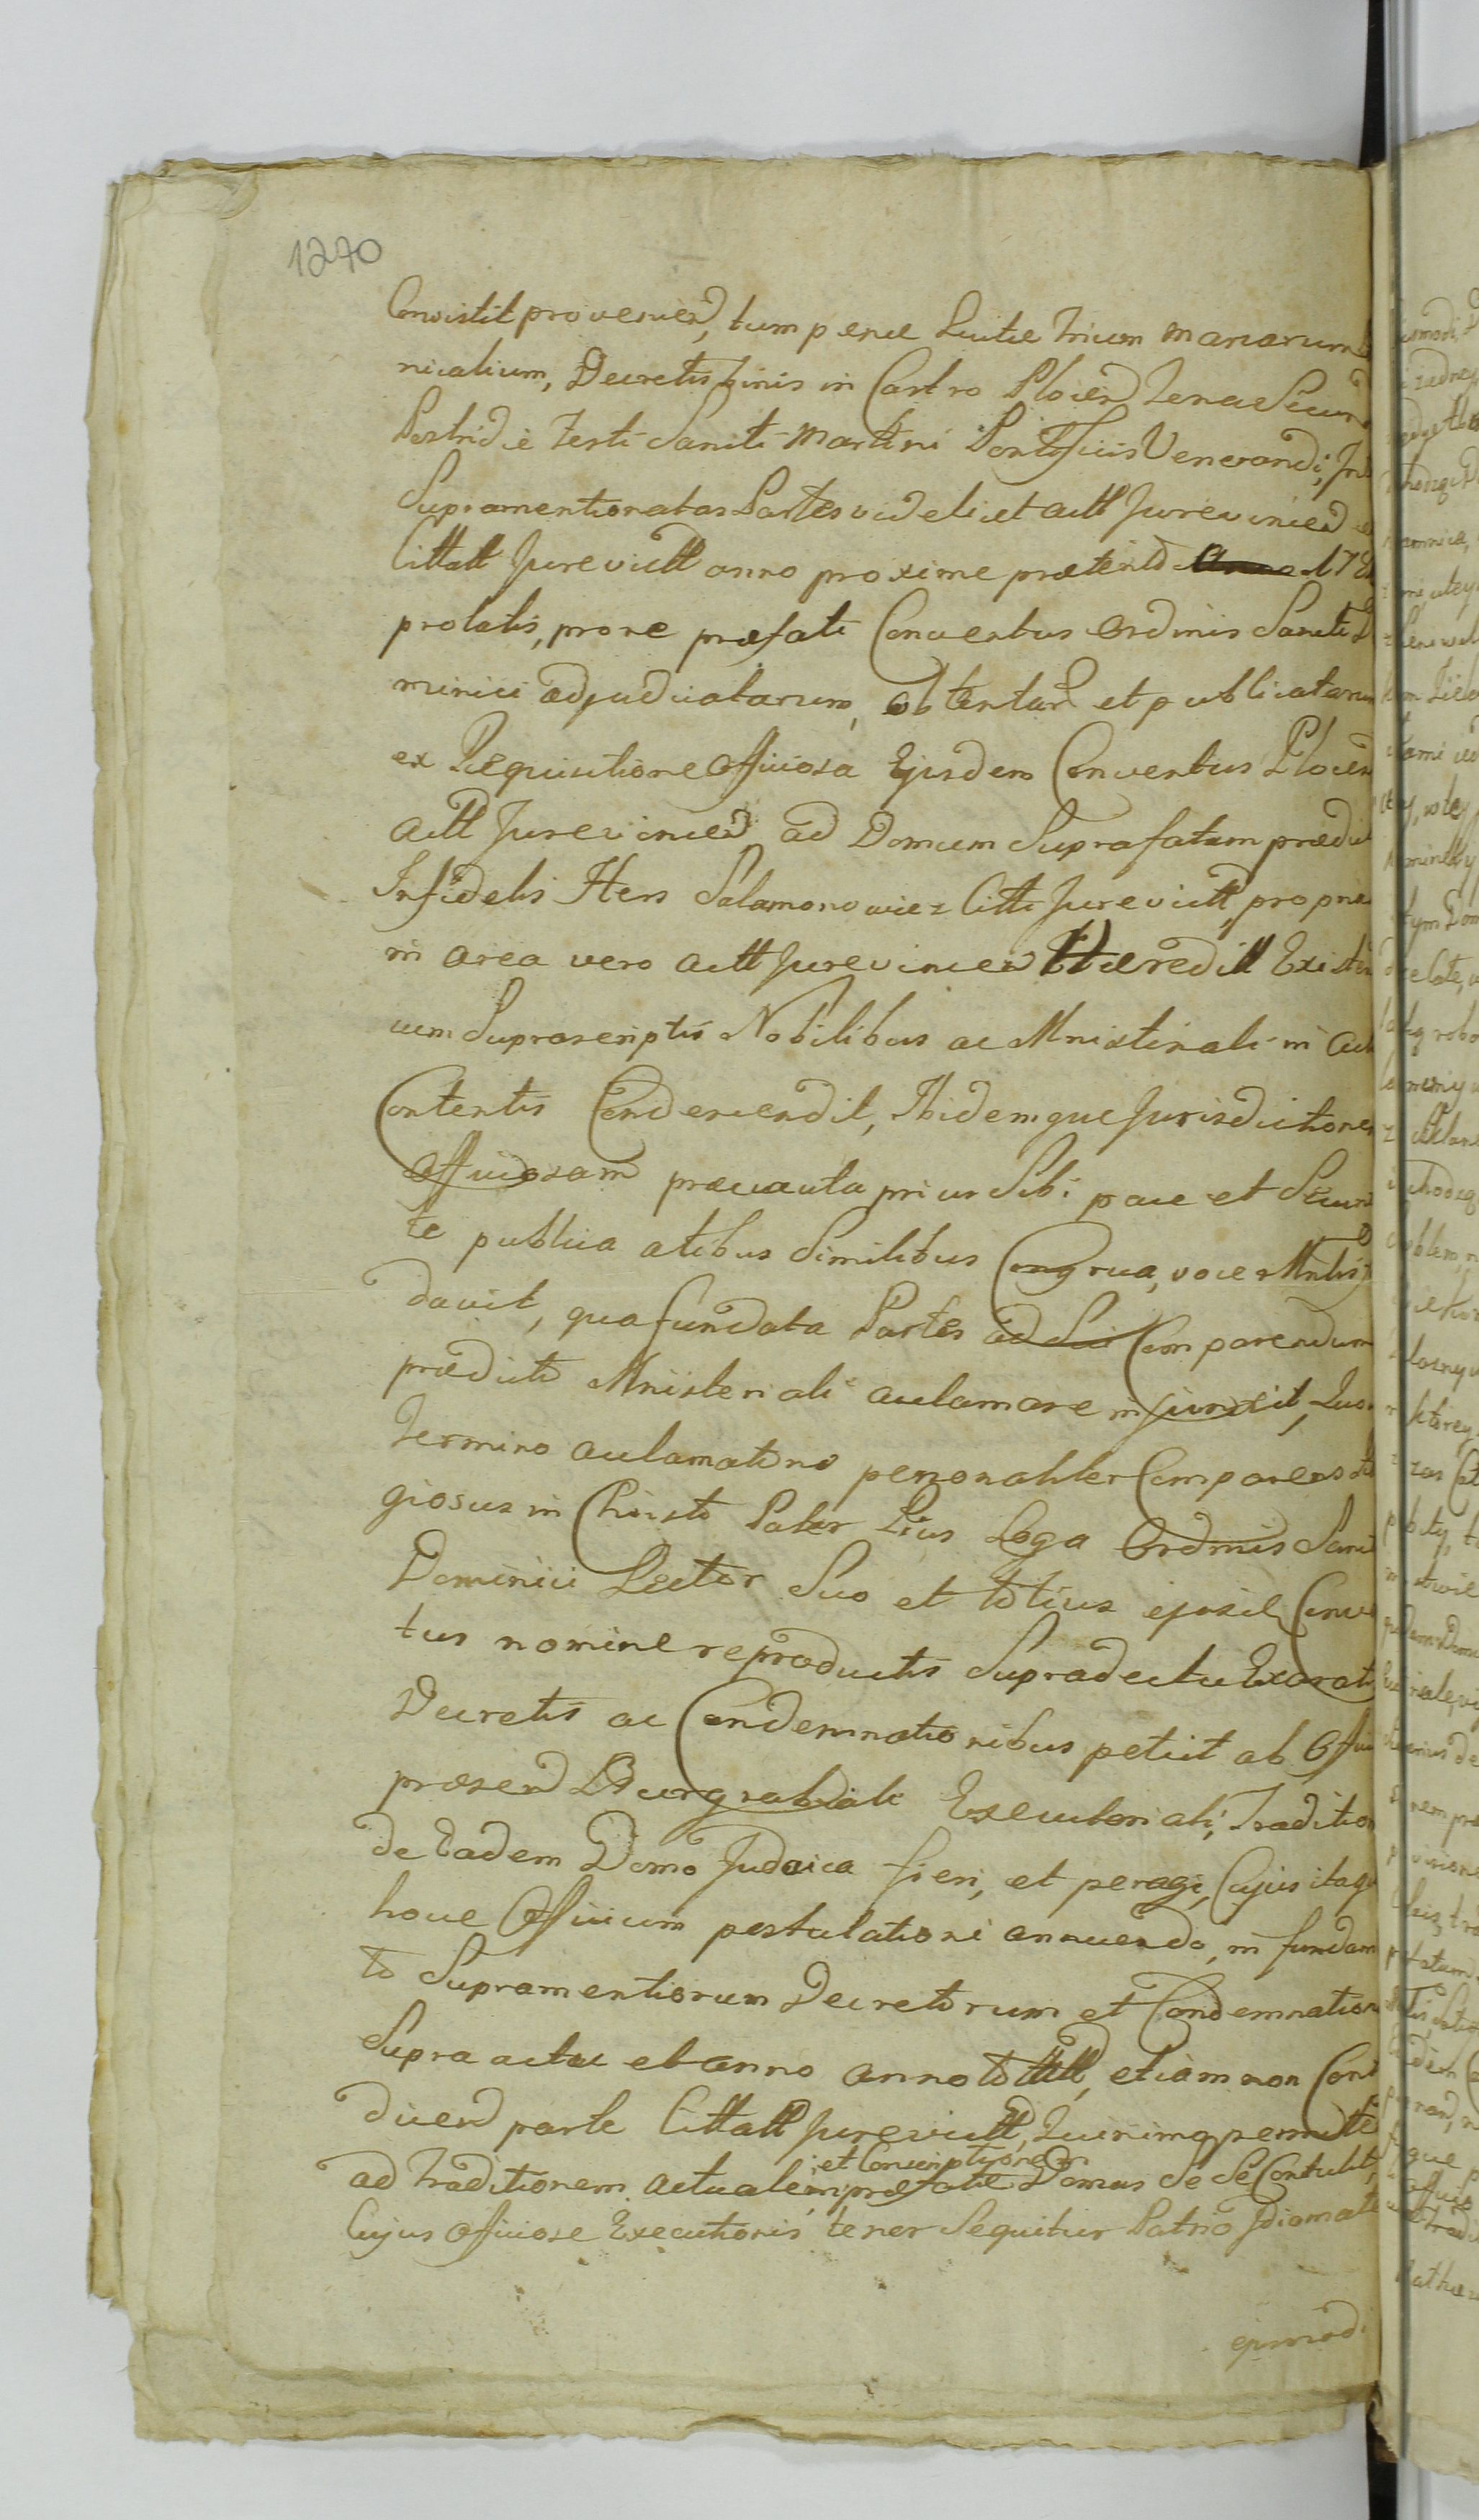 1270
Consistit provenien, tum pænæ luitæ trium marcarum
nicalium, Decretis binis in Castro Plocen
Postridie Festi Sancti Martini Pontificis Venerandi,
Supramentionatas Partes videlicet actt Jurevincen
Cittatt Jurevictt anno proxime præterito Anno 17
prolatis, pro re præfati Conventus Ordinis Sancti
minici adjudicatarum, obtentar et publicatarum
ex Requisitione officiosa Ejusdem Conventus Plocen
actt Jurevincen ad Domum Suprafatam prædict
Infidelis Hers Salamonowicz Citti Jurevictt propriam
in area vero actt Jurevincen Hæreditt Existen
cum Suprascriptis Nobilibus ac Mnisteriali in actu
Contentis Condescendit, Ibidemque Jurisdictionem
officiosam præcauta prius Sibi pace et Securi
te publica actibus Similibus Congrua, voce Mntis
davit, qua fundata Partes ad Sui Comparendum
prædicto Mnisteriali acclamare injunxit, Quo
Termino acclamationo personaliter Comparens
giosus in Christo Pater Pius Loga Ordinis Sancti
Dominici Lector Suo et totius ejusd Conven
tus nomine reproductis Supradictu Exarati
Decretis ac Condemnationibus petiit ab Offici
præsen Burgrabiali Executoriali, Tradition
de Eadem Domo Judaica fieri, et peragi, Cujus itaq
hocce Officium postulationi annuendo, in fundam
to Supramentiorum Decretorum et Condemnation
Supra actu et anno annotatt, etiam non Cont
dicen parte Cittatt Jurevictt, Quinimo permitte
et Conscriptionem
ad Traditionem actualem præfatæ Domus Se Se Contulit,
Cujus officiose Executionis tener Sequitur Patrio Idiomate
ejusmod